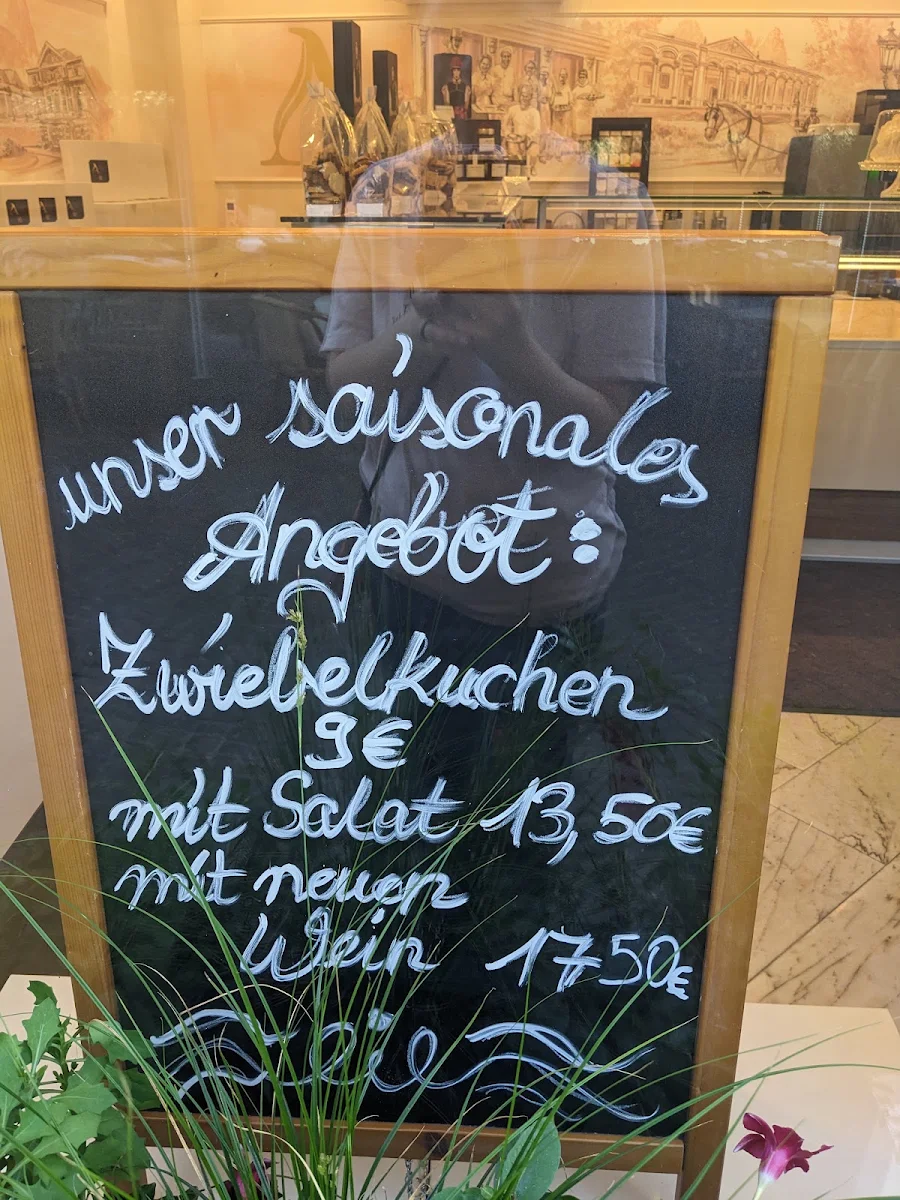 unser saisonales
Angebot:
Zwiebelkuchen
9€
mit Salat 13,50€
mit neuen
Wein 17 50€